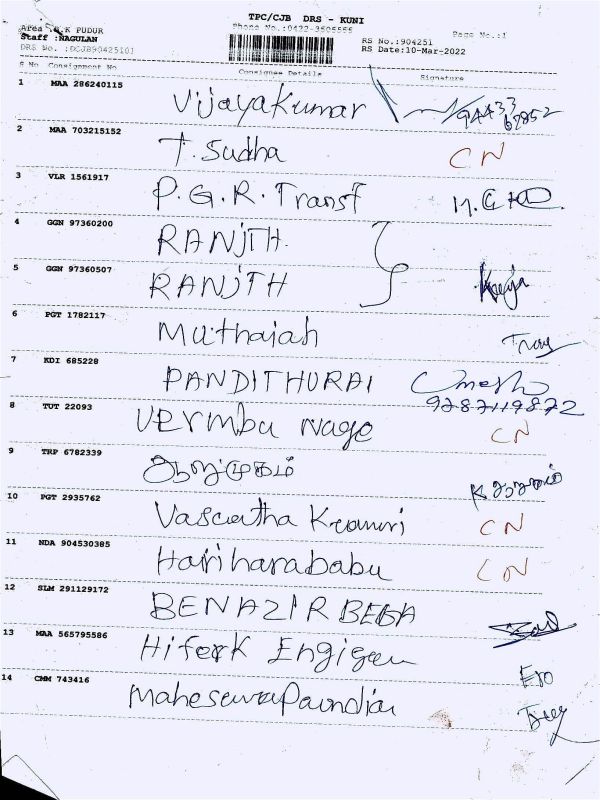 TPC/CJB DRS - KUNI
Area :K.K PUDUR
Phone No.:0422-3505555
Page No.:1
Staff :NAGULAN
RS No.:904251
DRS No. :DCJB90425101
RS Date:10-Mar-2022
S No Consignment No Consignee Details Signature
1 MAA 286240115 Vijayakumar 94433
62852
2 MAA 703215152 T. Sudha CN
3 VLR 1561917 P.G.R. Transf
4 GGN 97360200 RANJTH
5 GGN 97360507 RANJTH
6 PGT 1782117 Muthaiah
7 KDI 685228 PANDITHURAI Umesh
9287119872
8 TUT 22093 Vermbu Nage CN
9 TRP 6782339 ஆறுமுகம்
10 PGT 2935762 CN
11 NDA 904530385 Hariharababu CN
12 SLM 291129172 BENAZIR BEBA
13 MAA 565795586 Hifork
14 CMM 743416